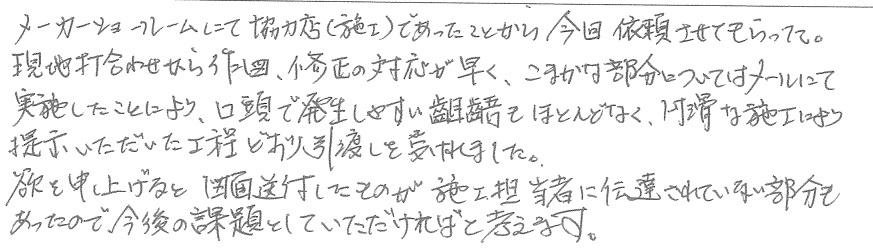 メーカーショールームにて協力店(施工)であったことから今回依頼させてもらって。
現地打合わせから作図、修正の対応が早く、こまかな部分についてはメールにて
実施したことにより、口頭で発生しやすい齟齬もほとんどなく、円滑な施工により
提示いただいた工程どおり引渡しを受けれました。
欲を申し上げると図面送付したものが施工担当者に伝達されていない部分も
あったので、今後の課題としていただければと考えます。